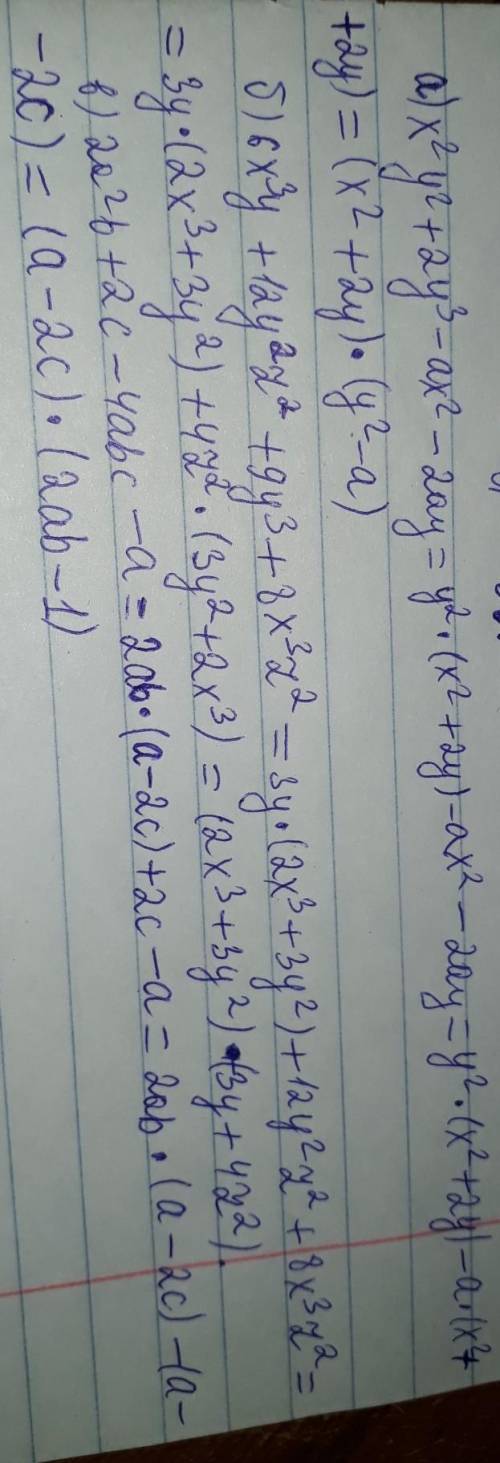 а) x²y² + 2y³ - ax² - 2ay = y² · (x² + 2y) - ax² - 2ay = y² · (x² + 2y) - a · (x² +
+2y) = (x² + 2y) · (y² - a)
б) 6x³y + 12y²z² + 9y³ + 8x³z² = 3y · (2x³ + 3y²) + 12y²z² + 8x³z² =
= 3y · (2x³ + 3y²) + 4z² · (3y² + 2x³) = (2x³ + 3y²) · (3y + 4z²).
в) 2a²b + 2c - 4abc - a = 2ab · (a - 2c) + 2c - a = 2ab · (a - 2c) - (a -
- 2c) = (a - 2c) · (2ab - 1)